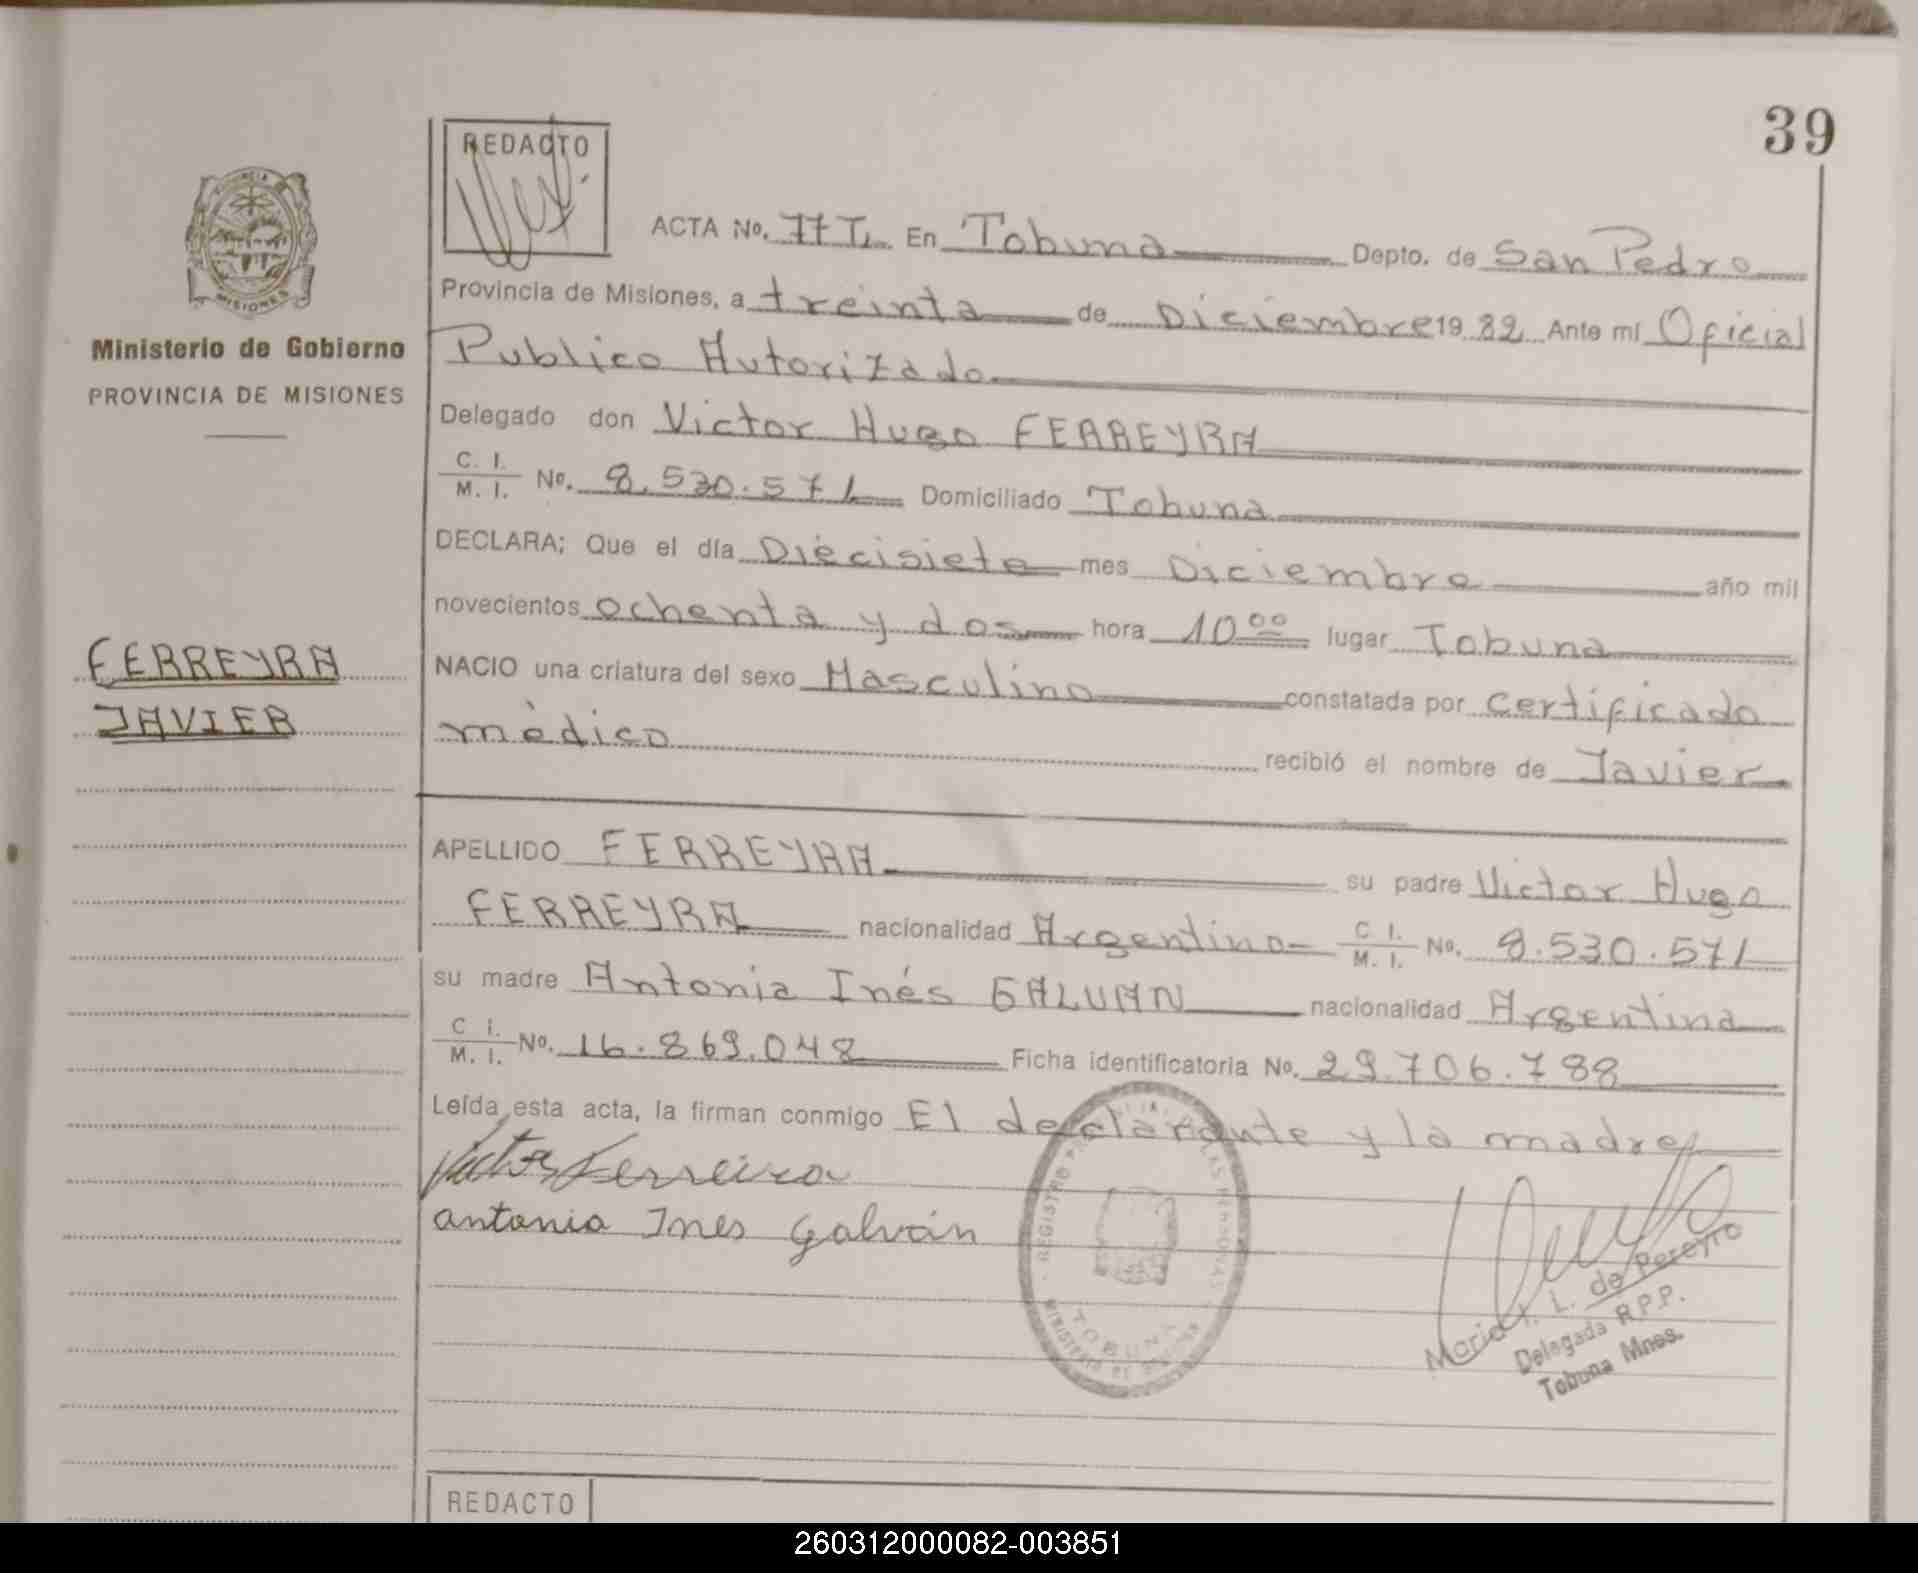 39
REDACTO
PROVINCIA
MISIONES
Ministerio de Gobierno
PROVINCIA DE MISIONES
FERREYRA
JAVIER
ACTA No. 77 T. En Tobuna Depto. de San Pedro
Provincia de Misiones, a treinta de Diciembre 19 82 Ante mi Oficial
Publico Autorizado
Delegado don Victor Hugo FERREYRA
C. I. / M. I. No. 8.530.571 Domiciliado Tobuna
DECLARA; Que el día Diecisiete mes Diciembre año mil
novecientos ochenta y dos hora 10 00 lugar Tobuna
NACIO una criatura del sexo Masculino constatada por certificado
mèdico recibió el nombre de Javier
APELLIDO FERREYRA su padre Victor Hugo
FERREYRA nacionalidad Argentino C I. / M. I. No. 8.530.571
su madre Antonia Inés GALVAN nacionalidad Argentina
C I. / M. I. No. 16.869.048 Ficha identificatoria No. 29.706.788
Leída esta acta, la firman conmigo El declarante y la madre
Victor Ferreira
antonia Ines Galván
REGISTRO DE LAS PERSONAS
TOBUNA
MINISTERIO DE GOBIERNO
Maria I. L. de Pereyro
Delegada R.P.P.
Tobuna Mnes.
REDACTO
260312000082-003851